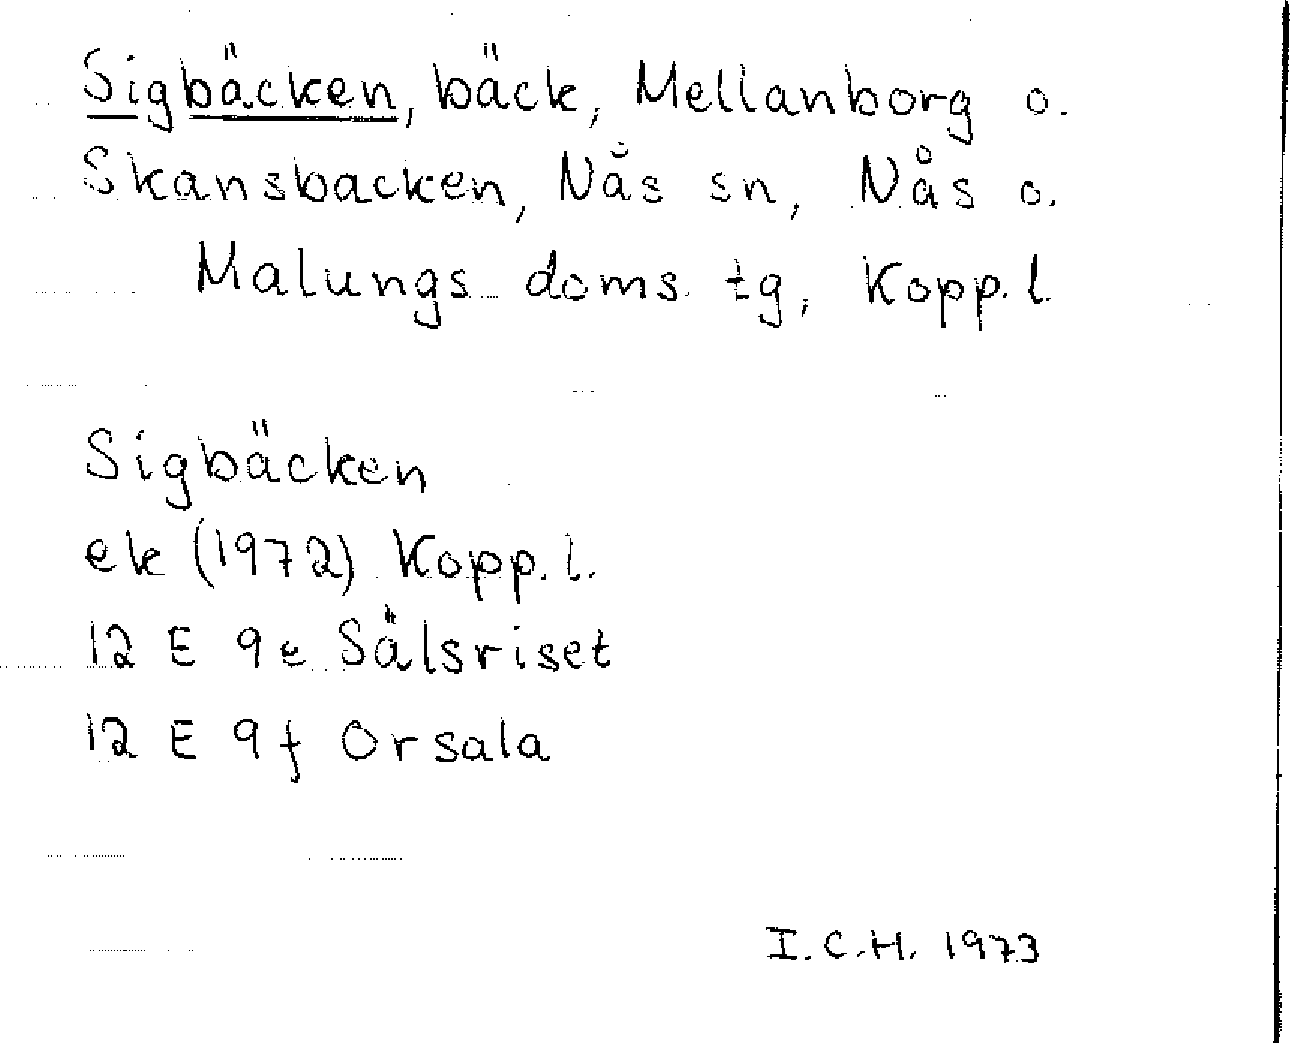 Sigbäcken, bäck, Mellanborg o.
Skansbacken, Nås sn, Nås o.
Malungs doms. tg, Kopp. l.
Sigbäcken
ek (1972) Kopp. l.
12 E 9e Sälsriset
12 E 9f Orsala
I.C.H. 1973